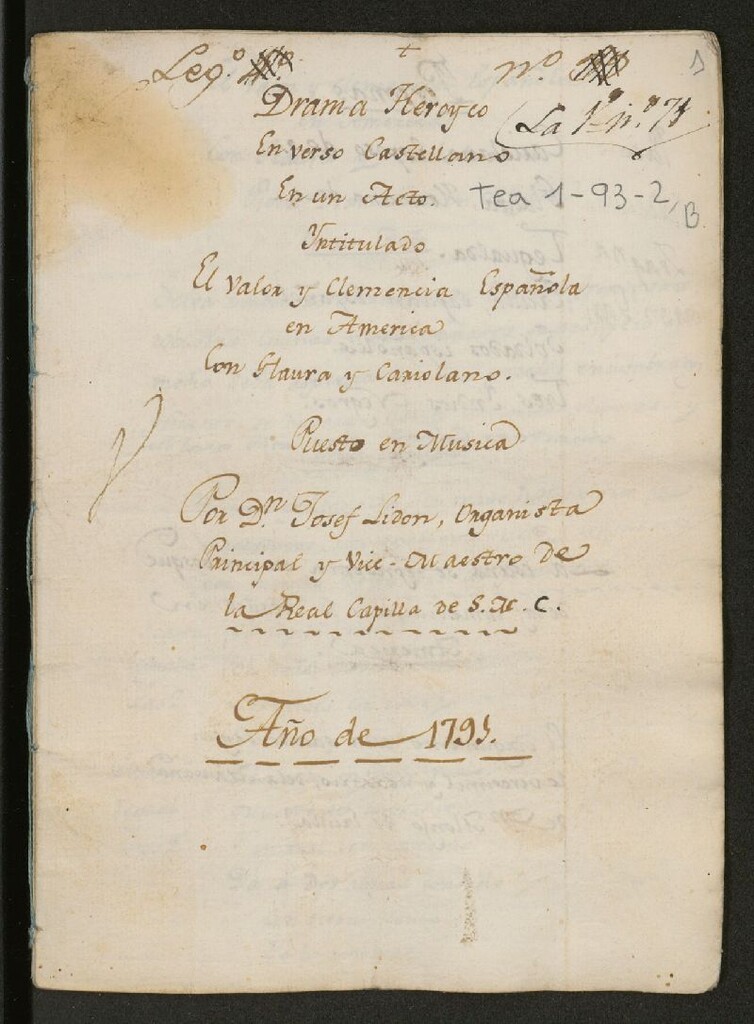 +
Leg.º nº. 1
Drama Heroyco
La 1ª n.º 71
En verso Castellano
En un Acto. Tea 1-93-2, B
Yntitulado
El Valor y Clemencia Española
en America
Con Glaura y Cariolano.
Puesto en Musica
Por D.n Josef Lidon, Organista
Principal y Vice-Maestro de
la Real Capilla de S. M. C.
Año de 1791.